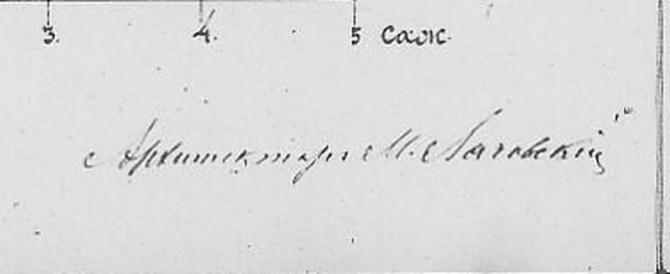 3. 4. 5 саж.
Архитекторъ М. Лаговскій